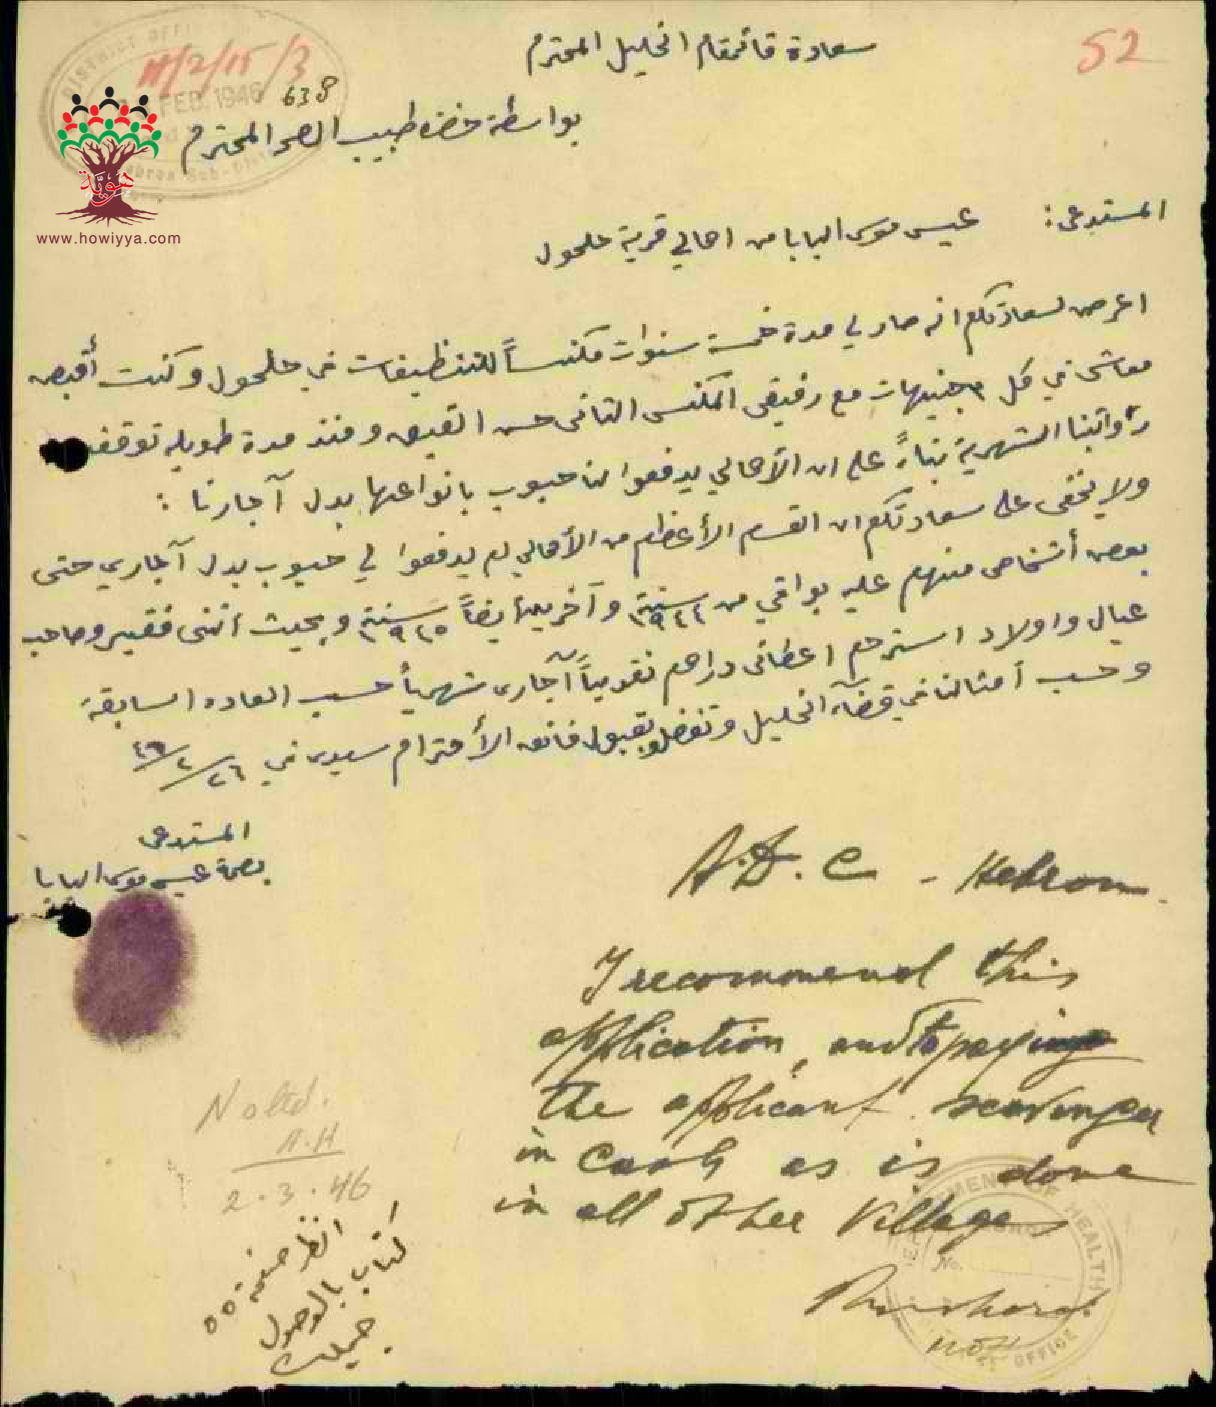 52
DISTRICT OFFI
H/2/15/3
FEB. 1946
638
هويّة
www.howiyya.com
سعادة قائمقام الخليل المحترم
بواسطة حضرة طبيب الصحه المحترم
المستدعي: عيسى موسى البابا من اهالي قرية حلحول
اعرض لسعادتكم انه صار لي مدة خمسة سنوات مكنساً للتنظيفات في حلحول وكنت أقبض
معاشي في كل جنيهات مع رفيقي المكنس الثاني حسن القيق ومنذ مدة طويله توقفت
رواتبنا الشهرية بناءً على ان الأهالي يدفعوا لنا حبوب بانواعها بدل آجارنا :
ولا يخفى على سعادتكم ان القسم الأعظم من الأهالي لم يدفعوا لي حبوب بدل آجاري حتى
بعض أشخاص منهم عليه بواقي من سنة ١٩٤٤ وآخرين أيضاً سنة ١٩٤٥ وبحيث انني فقير وصاحب
عيال واولاد استرحم اعطائي دراهم نقدياً آجاري شهرياً حسب العاده السابقة
وحسب أمثالنا في قضآء الخليل وتفضلو بقبول فائق الأحترام سيدي في ٢٦/٢/٤٦
المستدعي
بصمة عيسى موسى البابا
A.D.C - Hebron.
I recommend this
application, and to paying
the applicant scavenger
in cash as is done
in all other villages
DEPARTMENT OF HEALTH
No.
OFFICE
MOH
Noted.
2.3.46
انظر صفحة ٥٥
كتاب بالوصول